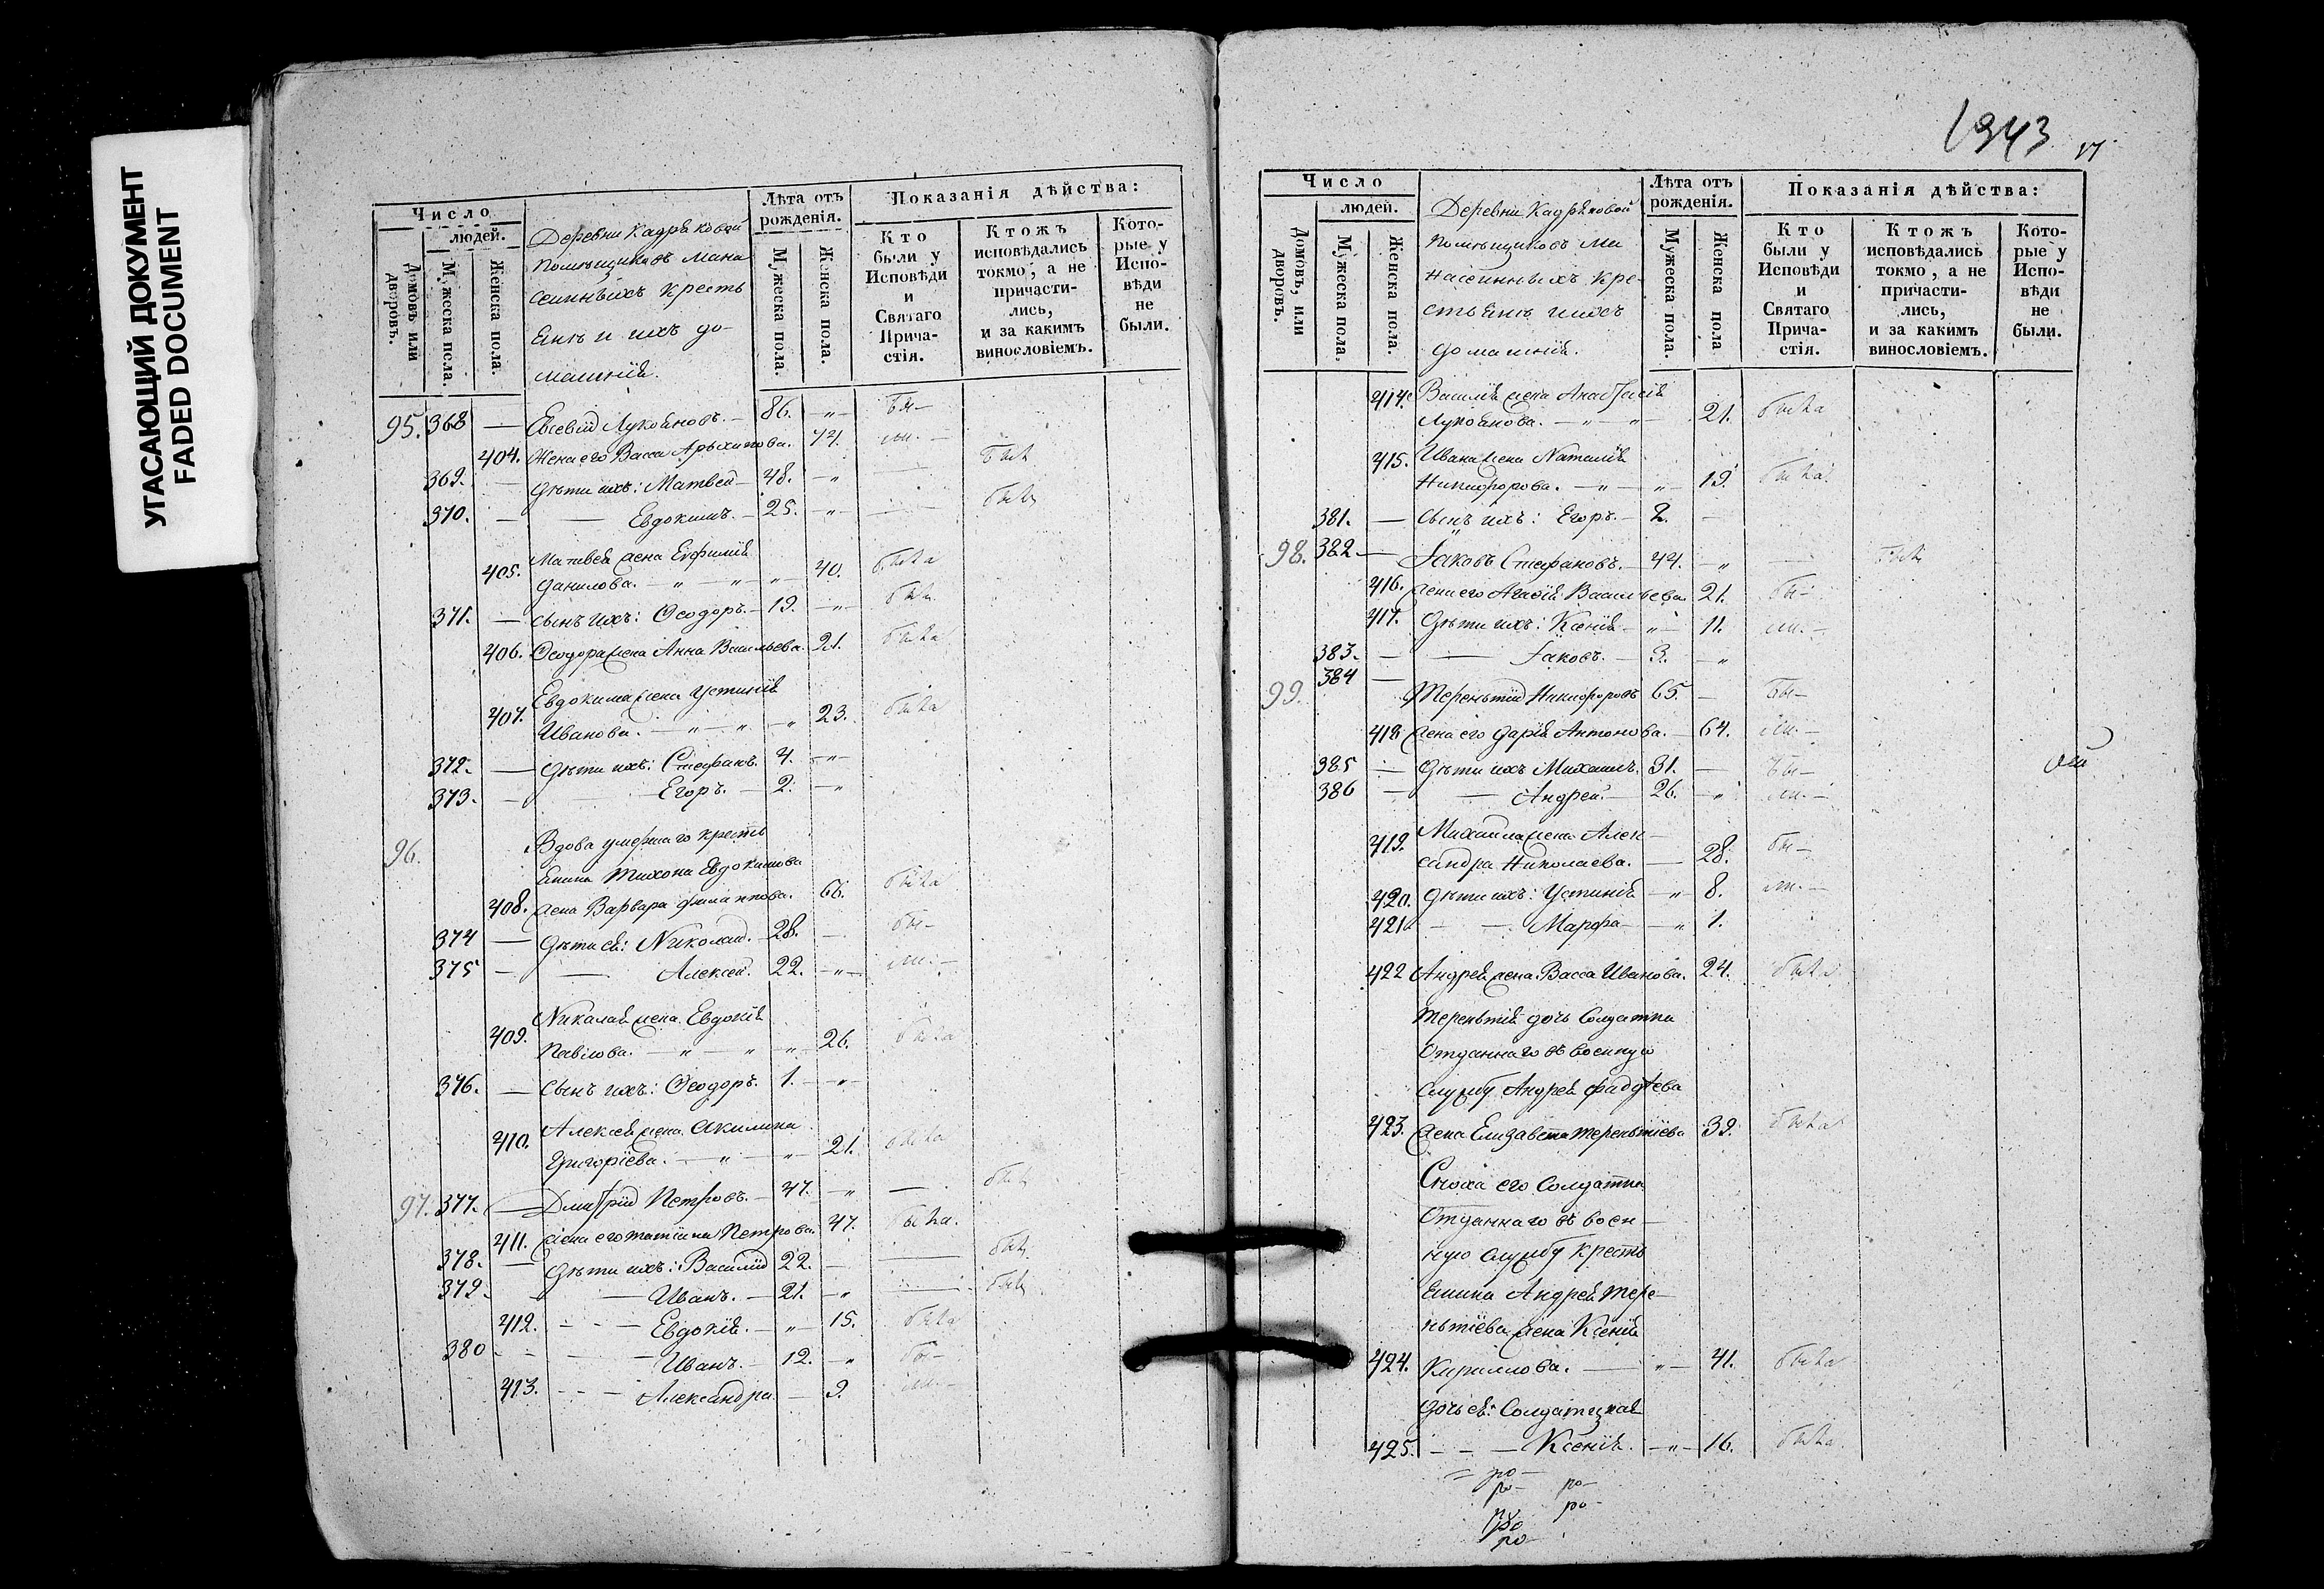 УГАСАЮЩИЙ ДОКУМЕНТ
FADED DOCUMENT
Число
людей.
Домовъ или дворовъ.
Мужеска пола.
Женска пола.
Деревни Кадряковой
помѣщиковъ Мана
сеиныхъ кресть
янъ и ихъ до-
машнія.
Лѣта отъ рожденія.
Мужеска пола.
Женска пола.
Показанія дѣйства:
Кто были у Исповѣди и Святаго Причастія.
Ктожъ исповѣдались токмо, а не причастились, и за какимъ винословіемъ.
Которые у Исповѣди не были.
95. 368 — Евсевій Лукояновъ. — 86. —„— бы—
404. Жена его Васса Архипова. 74. ли. —
369. — Дѣти ихъ: Матвей — 48. —„ — былъ
370. — — Евдокимъ. — 25. —„— — былъ
Матвея жена Евфимія
405. Данилова. —„—„—„— 40. была
371. — сынъ ихъ: Ѳеодоръ. — 19. —„— былъ
406. Ѳеодора жена Анна Васильева. 21. была
Евдокима жена Устинія
407. Иванова. —„—„—„ 23. была
372. — Дѣти ихъ: Стефанъ. 4. —„—
373. — — Егоръ. — 2. —„
96. Вдова умершаго кресть
янина Тихона Евдокимова
408. жена Варвара 66. была
374 — Дѣти ея: Николай. — 28. — бы—
375 — — Алексей. 22. —„— ли. —
Николая жена Евдокія
409. Павлова. —„—„—„— 26. была
376. — Сынъ ихъ: Ѳеодоръ. 1. —„—
Алексея жена Акилина
410. Григоріева. —„—„— 21. была
97. 377. — Дмитрій Петровъ. — 47. —„ — былъ
411. Жена его Татіана Петрова. 47. была.
378. — Дѣти ихъ: Василій 22. — — былъ.
379. — Иванъ. — 21. —„ — былъ
412. — — Евдокія. —„— 15. была
380 — — Иванъ. — 12. —„ бы—
413. — — Александра. — 9. ли. —
1343 17
Число
людей.
Домовъ, или дворовъ.
Мужеска пола.
Женска пола.
Деревни Кадряковой
помѣщиковъ Ма
насеинныхъ кре-
стьянъ и ихъ
домашнія.
Лѣта отъ рожденія.
Мужеска пола.
Женска пола
Показанія дѣйства:
Кто были у Исповѣди и Святаго Причастія.
Ктожъ исповѣдались токмо, а не причастились, и за какимъ винословіемъ.
Которые у Исповѣди не были.
414. Василія жена Анастасія
Лукоянова. —„—„— 21. была
415. Ивана жена Наталія
Никифорова. —„—„— 19. была.
381. — сынъ ихъ: Егоръ. — 2. —
98. 382 — Іаковъ Стефановъ. — 44. —„ — былъ
416. жена его Агафія Васильева 21. бы—
417. Дѣти ихъ: Ксенія —„— 11. ли. —
383. — — Іаковъ. — 3. —„
99. 384 — Терентій Никифоровъ 65. — бы—
418 жена его Дарія Антонова. — 64. ли. —
385 — Дѣти ихъ Михаилъ. 31. — бы—
386 — — Андрей. — 26. —„ ли. —
419. Михаила жена Алек—
сандра Николаева. — 28. бы—
420. Дѣти ихъ: Устинія —„ 8. ли. —
421. — — Марфа — —„ 1.
422 Андрея жена Васса Иванова. 24. была
Терентія дочь Солдатка
Отданнаго въ военную
службу Андрея Фадѣева
423. жена Елизавета Терентіева 39. была
Сноха его Солдатка
Отданнаго въ воен—
ную службу кресть
янина Андрея Тере—
нтіева жена Ксенія
424. Кириллова. — „— 41. была
Дочь ея: Солдатская
425. — — Ксенія. —„— 16. была.
= ро—
ро— ро—
ро—
ро
ро—